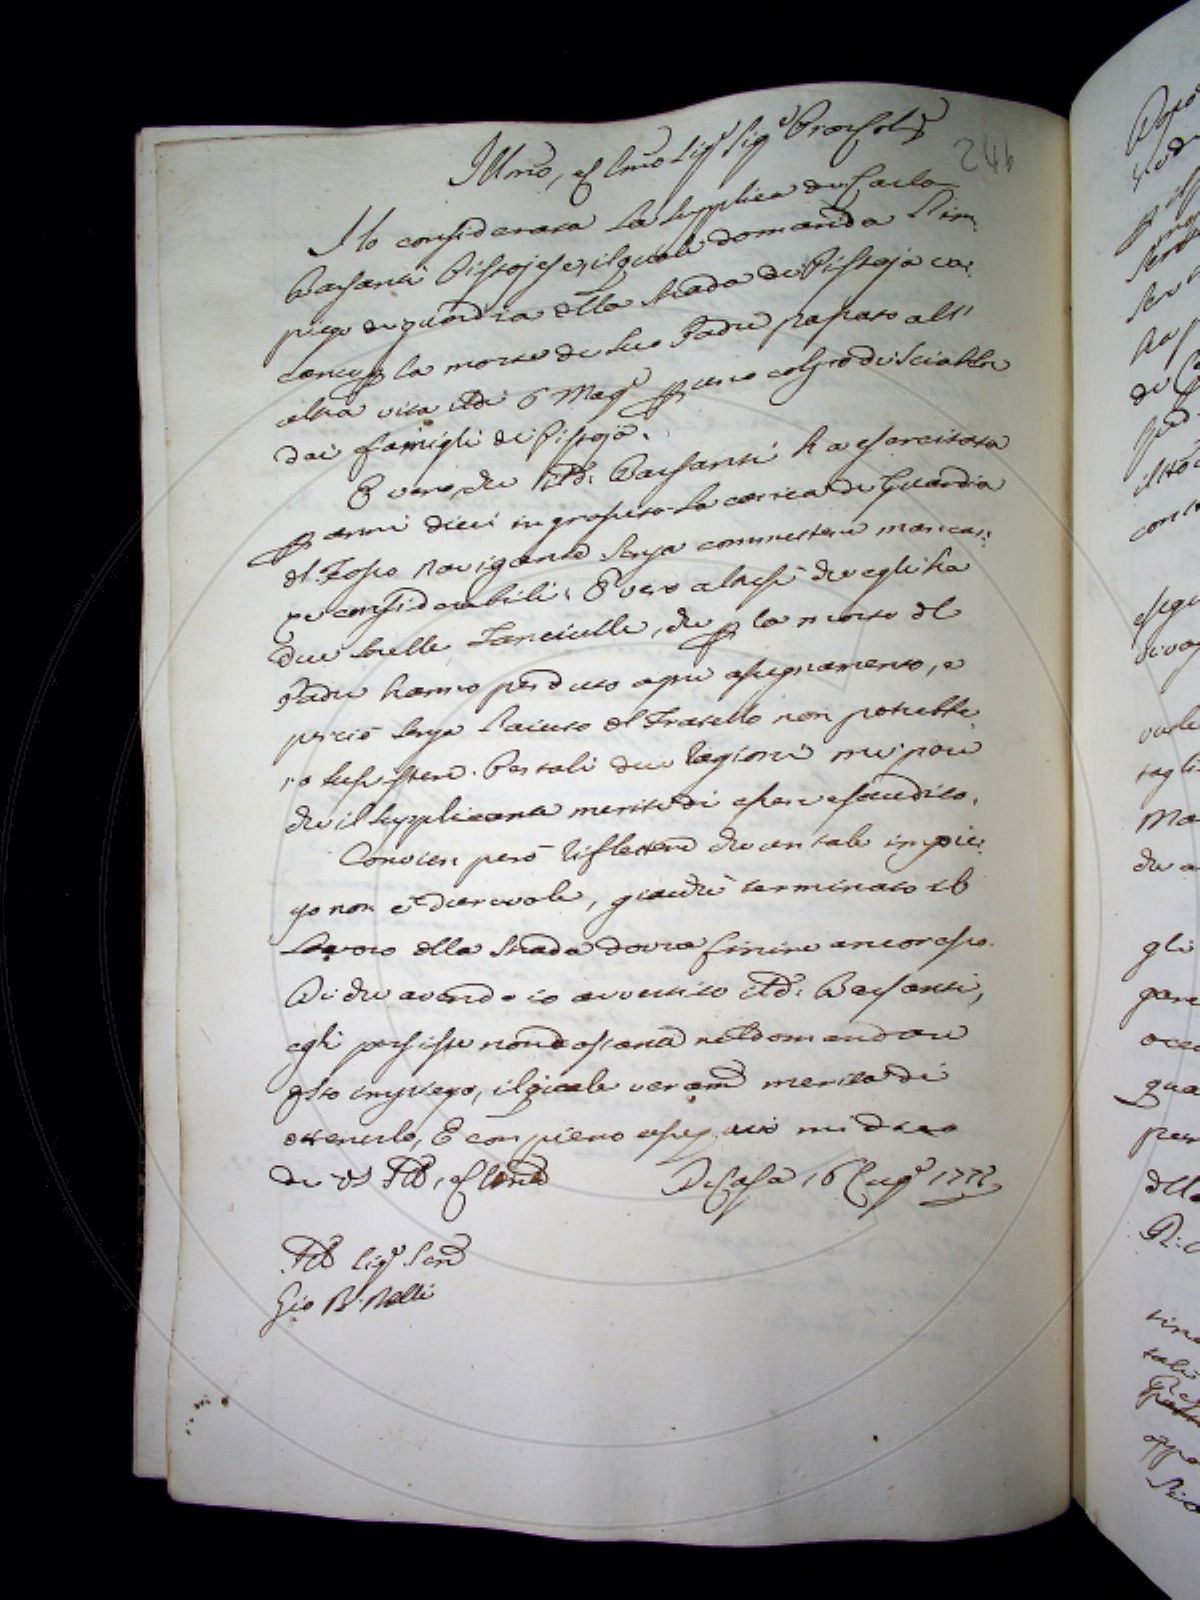 Illmo, e Clmo Sigr Sigr Pron Colmo
246
Ho considerata la supplica di Carlo
Barsanti Pistojese, il quale domanda l'im-
piego di guardia della strada di Pistoja va-
cante p la morte di suo Padre passato all'
altra vita il dì 6 Magº p uno colpo di Sciabla
dai famigli di Pistoja.
E vero, che il d: Barsanti ha esercitata
p anni dieci in grosseto la carica di Guardia
del Fosso Navigante senza commettere mancan-
ze considerabili; E vero altresì che egli ha
due sorelle Fanciulle, che p la morte del
Padre hanno perduto ogni assegnamento, e
perciò senza l'aiuto del Fratello non potrebbe-
ro sussistere. Per tali due ragioni mi pare
che il supplicante meriti di essere esaudito.
Convien però riflettere che un tale impie-
go non è durevole, giacchè terminato il
Lavoro della strada dovrà finire ancor esso.
Di che avendo io avvertito il d: Barsanti,
egli persiste nondostante nel domandare
qsto impiego, il quale veramte merita di
ottenerlo, E con pieno ossequio mi dico
di VS Illma, e Clma Di Casa 16 Lugº 1772
Ill Sigr Send
Gio B. Nelli